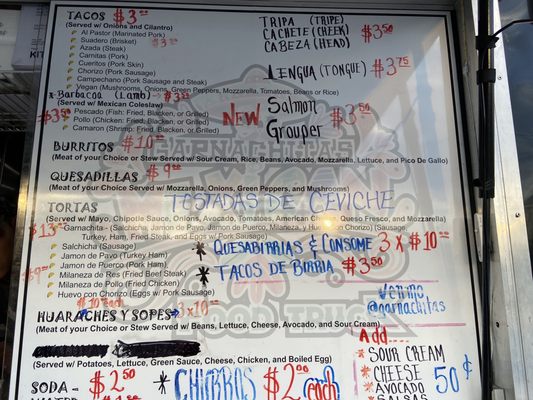 TACOS $3.00
(Served w/ Onions and Cilantro)
Al Pastor (Marinated Pork)
Suadero (Brisket) $3.25
Azada (Steak)
Carnitas (Pork)
Cueritos (Pork Skin)
Chorizo (Pork Sausage)
Campechano (Pork Sausage and Steak)
Vegan (Mushrooms, Onions, Green Peppers, Mozzarella, Tomatoes, Beans or Rice)
x- Barbacoa (Lamb)
(Served w/ Mexican Coleslaw)
$3.50
Pescado (Fish: Fried, Blacken, or Grilled)
Pollo (Chicken: Fried, Blacken, or Grilled)
Camaron (Shrimp: Fried, Blacken, or Grilled)
BURRITOS $10.00
(Meat of your Choice or Stew Served w/ Sour Cream, Rice, Beans, Avocado, Mozzarella, Lettuce, and Pico De Gallo)
QUESADILLAS $9.00
(Meat of your Choice Served w/ Mozzarella, Onions, Green Peppers, and Mushrooms)
TORTAS
(Served w/ Mayo, Chipotle Sauce, Onions, Avocado, Tomatoes, American Cheese, Queso Fresco, and Mozzarella)
$13
Garnachita- (Salchicha, Jamon de Pavo, Jamon de Puerco, Milanesa, y Huevo con Chorizo) (Sausage,
Turkey, Ham, Fried Steak, and Eggs w/ Pork Sausage)
Salchicha (Sausage)
Jamon de Pavo (Turkey Ham)
Jamon de Puerco (Pork Ham)
Milaneza de Res (Fried Beef Steak)
Milaneza de Pollo (Fried Chicken)
Huevo con Chorizo (Eggs w/ Pork Sausage)
$9
HUARACHES Y SOPES
3x10.00
(Meat of your Choice or Stew Served w/ Beans, Lettuce, Cheese, Avocado, and Sour Cream)
(Served w/ Potatoes, Lettuce, Green Sauce, Cheese, Chicken, and Boiled Egg)
SODA - $2.50
TRIPA (TRIPE)
CACHETE (CHEEK) $3.50
CABEZA (HEAD)
LENGUA (TONGUE) $3.75
NEW Salmon
Grouper $3.50
TOSTADAS DE CEVICHE
* QUESABIRRIAS & CONSOME 3 X $10.00
* TACOS DE BIRRIA $3.50
GARNACHITAS
FOOD TRUCK
Venmo
@garnachitas
Add....
* SOUR CREAM
* CHEESE 50¢
* AVOCADO
* SALSAS
* CHURROS $2.00 each